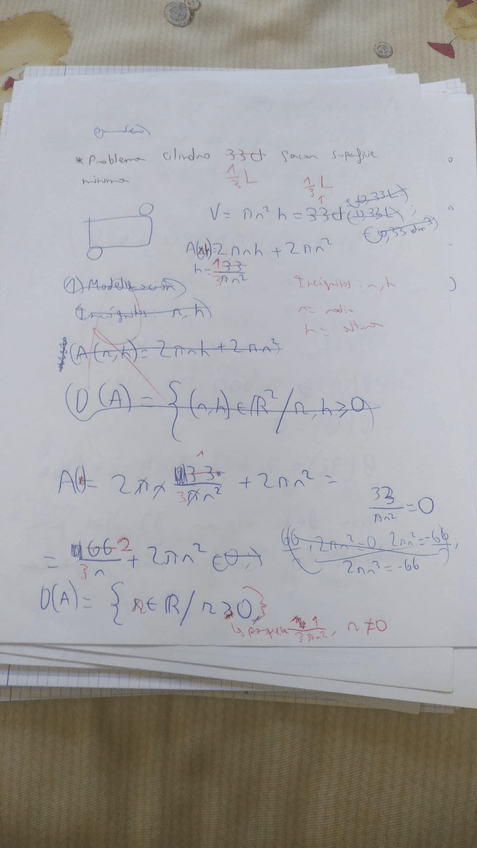 * Problema cilindro 33cl sacar superficie
mínima
1/3 L
1/3 L
V = πr² h = 33cl (0,33L)
A(r) = 2πrh + 2πr²
h = 1/3πr²
① Modelización
Incógnitas: r, h
Incógnitas: r, h
r = radio
h = altura
A(r,h) = 2πrh + 2πr²
D(A) = {(r,h) ∈ R² / r, h ≥ 0
A(r) = 2πr 1/3πr² + 2πr² =
33/πr² = 0
= 2/3r + 2πr²
66, 2πr² = 0, 2πr² = -66,
2πr² = -66
D(A) = { r ∈ R / r > 0 }
↳ porque 1/3πr², r ≠ 0